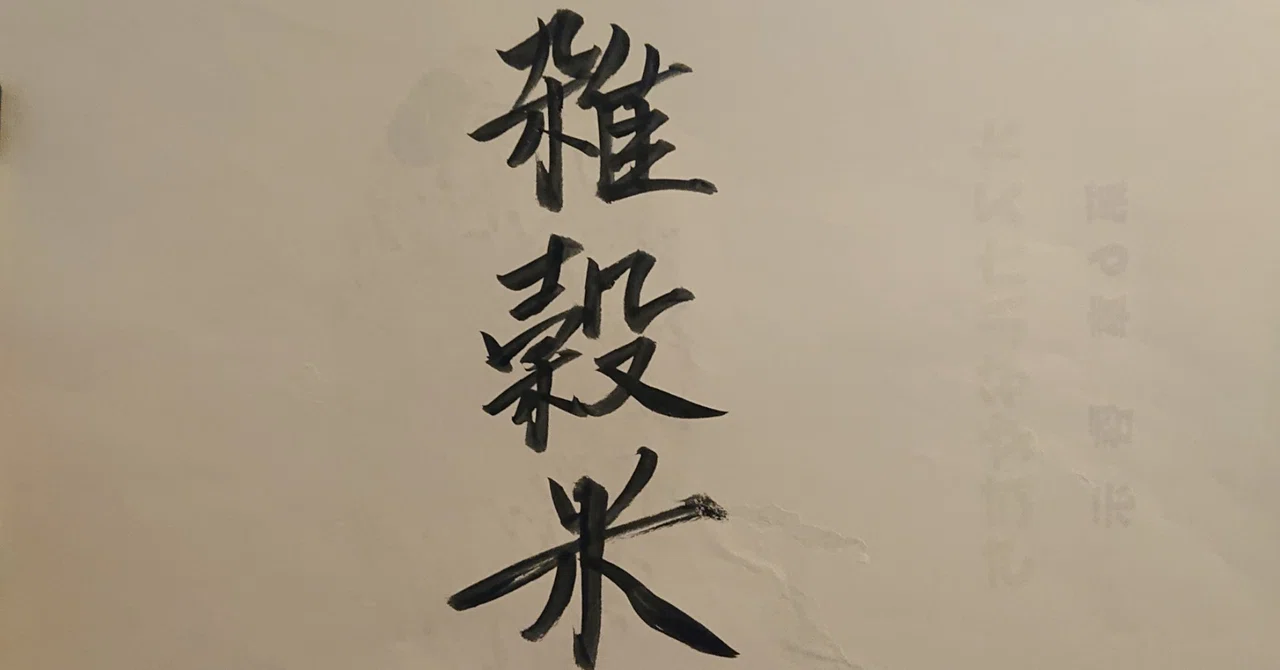 雑穀米